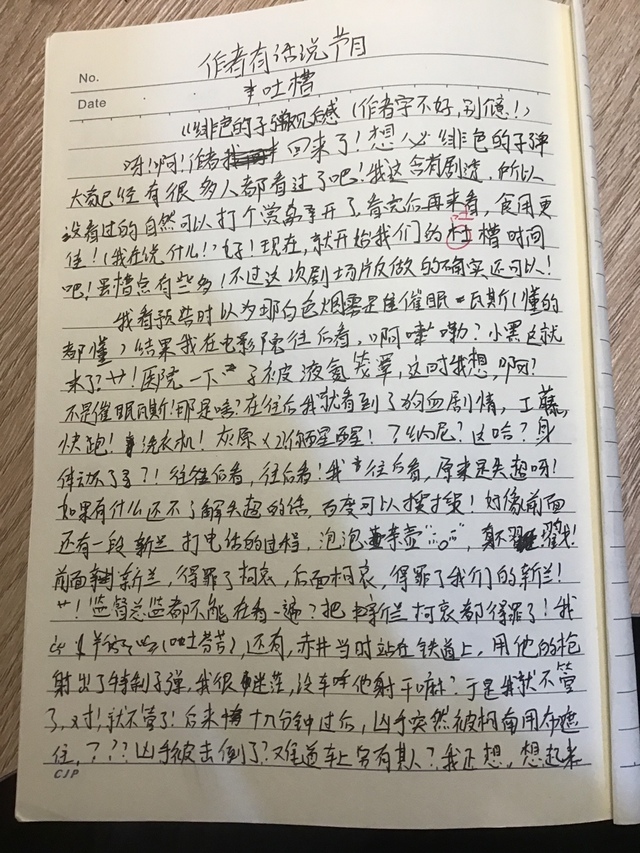 作者有话说节目
No.
吐槽
Date
《绯色的子弹》观后感(作者字不好,别介意!)
呀!啊!作者我回来了!想必《绯色的子弹
大家已经有很多人都看过了吧!我这含有剧透,所以
没看过的自然可以打个赏离开了,看完后再来看,食用更
佳!(我在说什么!)好!现在,就开始我们的吐槽时间
吐
吧!虽槽点有些多(不过这次剧场版做的确实还可以!
我看预告时以为那白色烟雾是催眠瓦斯(懂的
都懂)结果我在电影院往后看,啊嘞嘞?小黑这就
来了?艹!医院一下子被液氦笼罩,这时我想,啊?
不是催眠瓦斯!那是啥?在往后我就看到了狗血剧情,工藤,
快跑!洗衣机!灰原 你醒醒!?纳尼?这啥?身
体动不了了?!往往后看,往后看!我往后看,原来是失超呀!
如果有什么还不了解失超的话,百度可以搜搜!好像前面
还有一段新兰打电话的过程,泡泡茶壶
前面新兰,得罪了柯哀,后面柯哀,得罪了我们的新兰!
艹!监督总监都不能在看一遍?把新兰柯哀都得罪了!我
(吐芬芳),还有,赤井当时站在铁道上,用他的枪
射出了特制子弹,我很迷茫,没车呀他射干嘛?于是我就不管
了,对!就不管了!后来十几分钟过后,凶手突然被柯南用布遮
住,???凶手被击倒了?难道车上另有其人?我还想,想起来
CJP